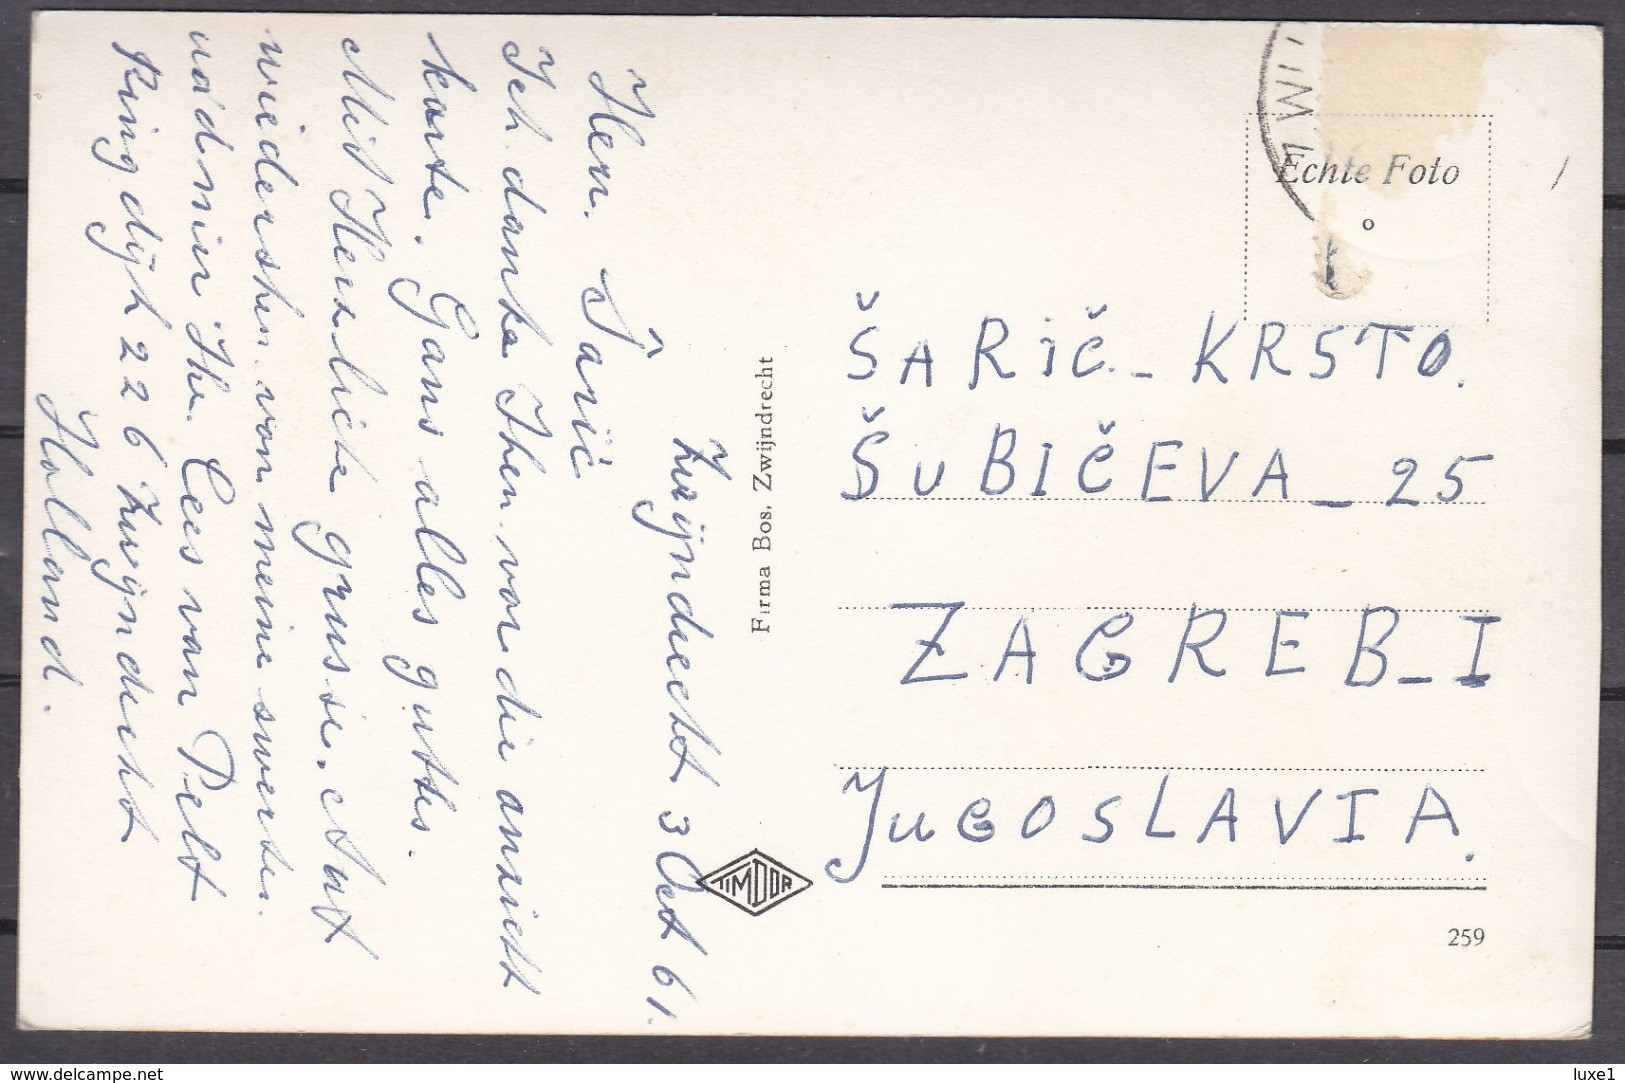 Zwijndrecht 3 Oct 61.
Herr. Šarič
Ich danke Ihen von die ansicht
karte. Gans alles gutes.
Mit Herzliche grusse. Auf
wiedersehen von meine swester
Cees van Pelt
Ringdijk 226 Zwijndrecht
Holland.
Firma Bos, Zwijndrecht
TIMDOR
Echte Foto
ŠARIČ - KRSTO.
ŠUBIČEVA - 25
ZAGREB - I
JUGOSLAVIA.
259
www.delcampe.net
luxe1